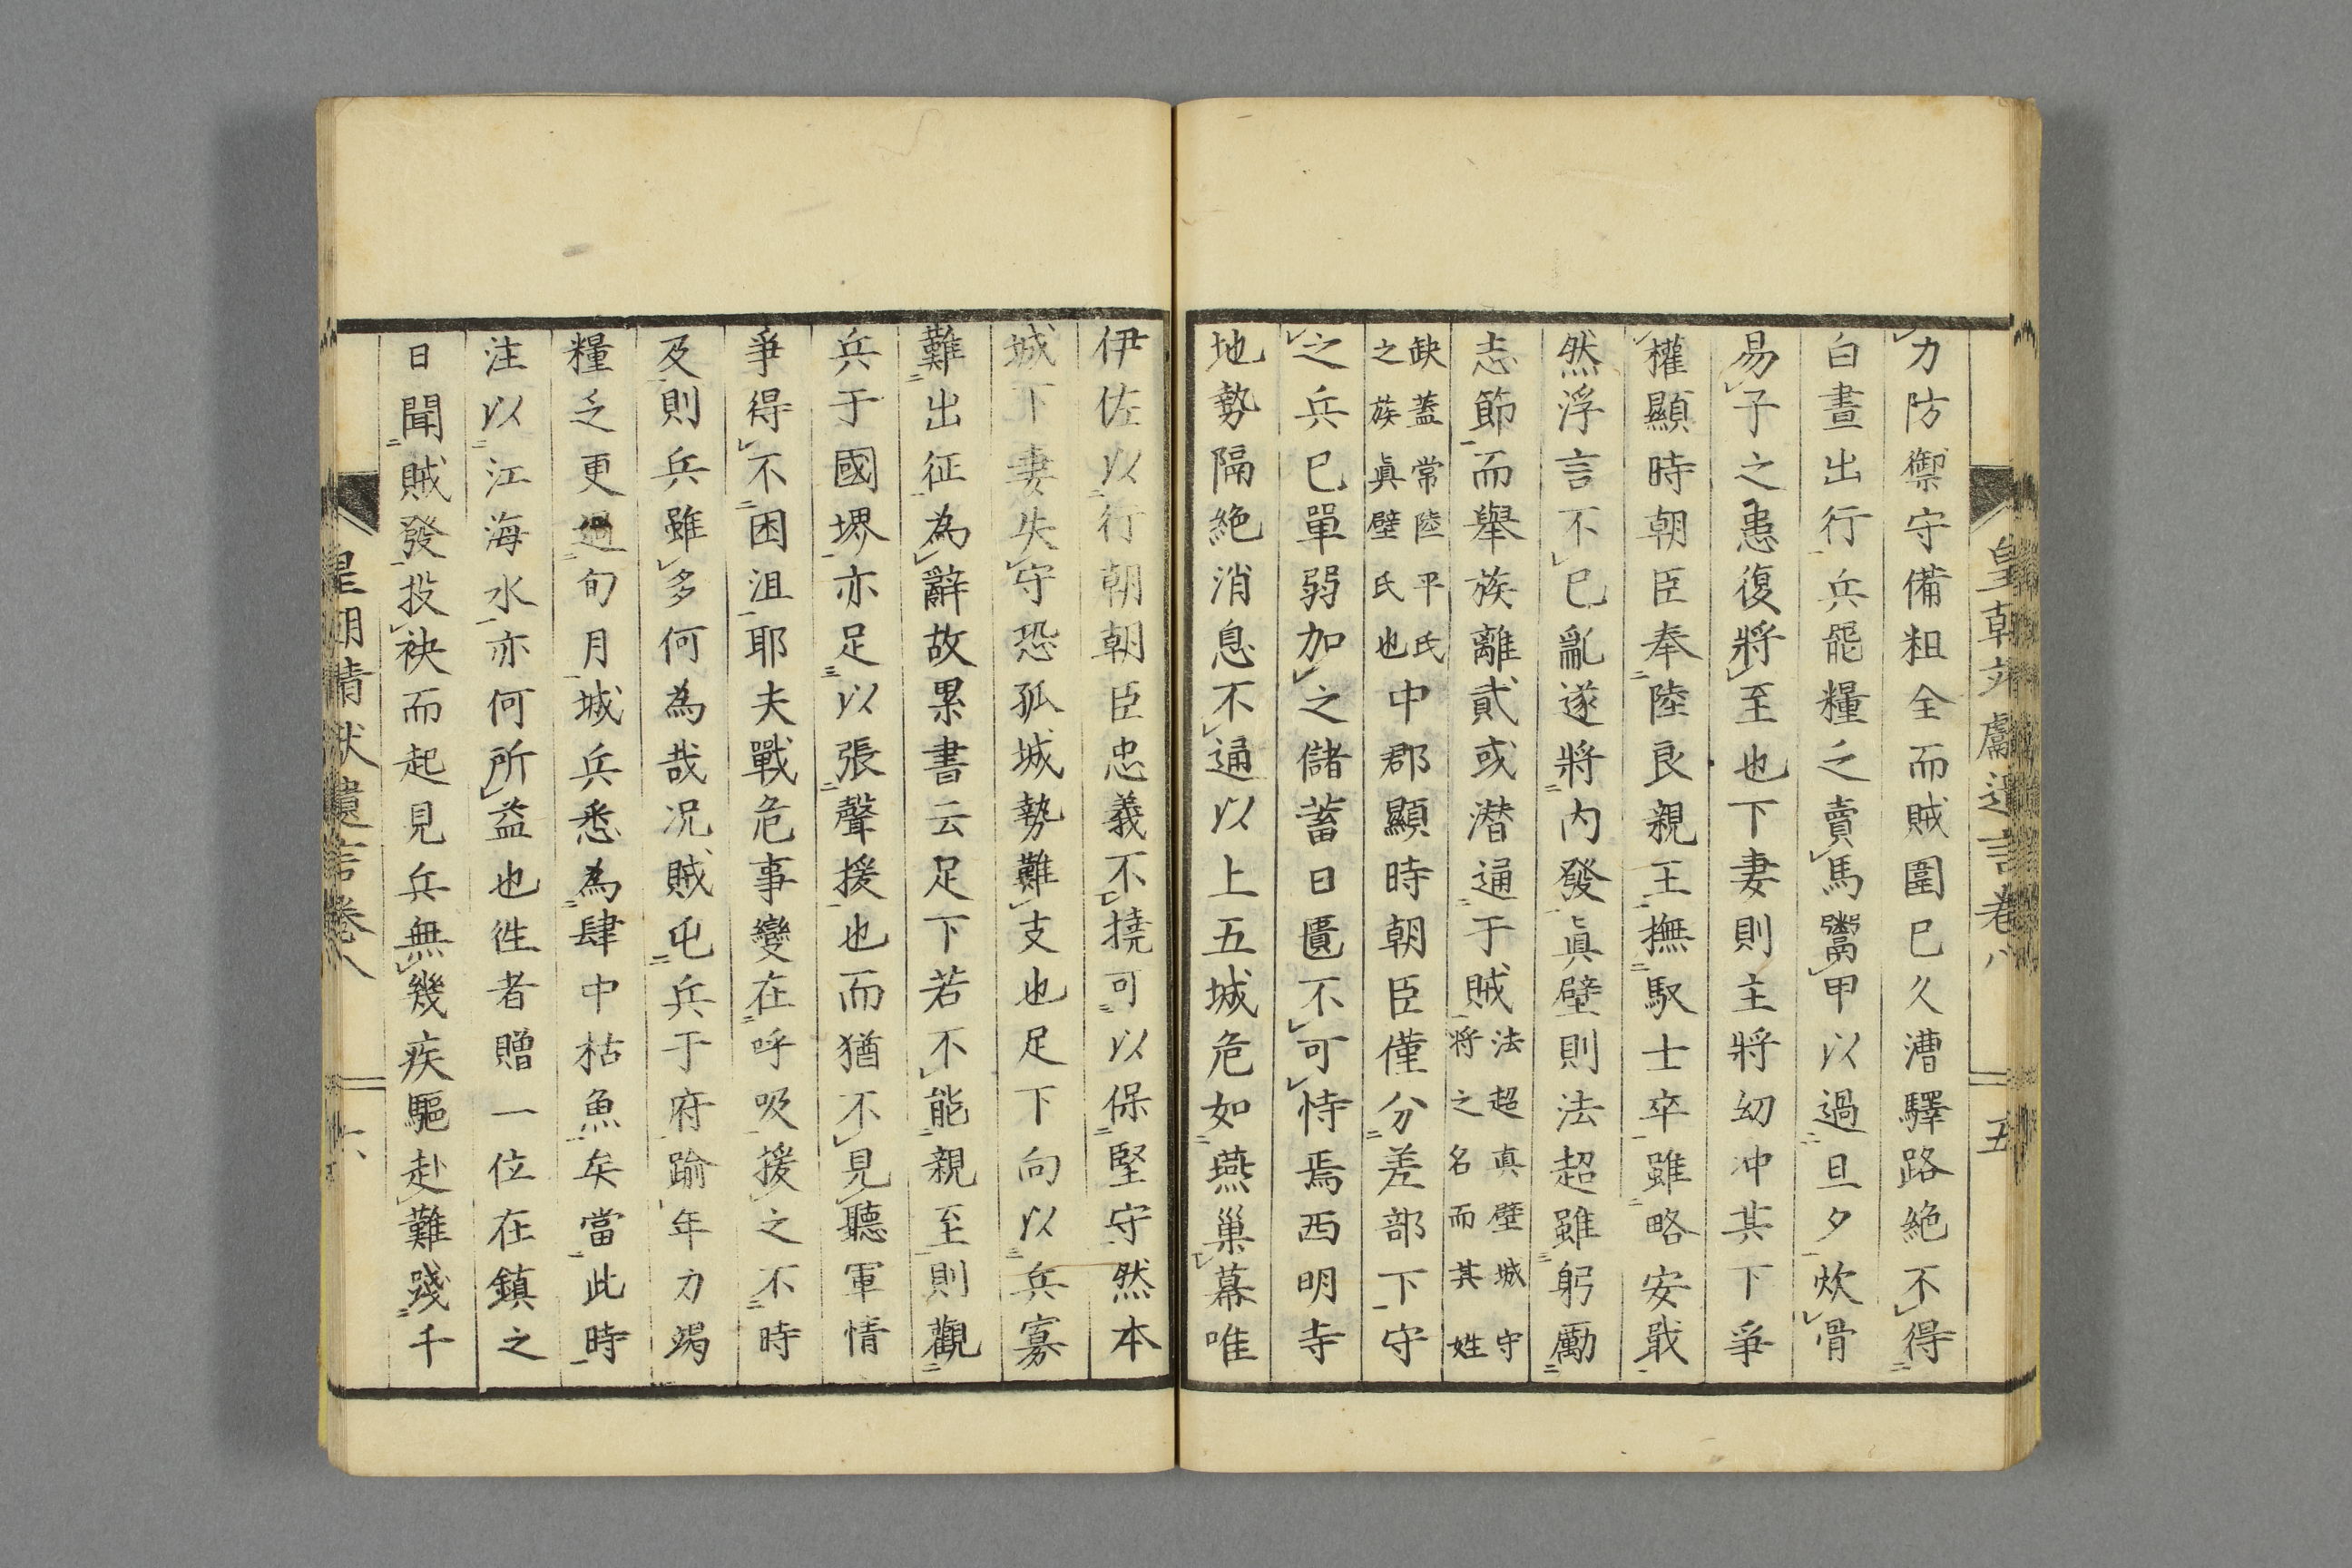 力防禦守備粗全而賊圍已久漕驛路絶不得
白晝出行兵罷糧乏賣馬鬻甲以過旦夕炊骨
易子之患復將至也下妻則主將幼冲其下爭
權顯時朝臣奉陸良親王撫馭士卒雖略安戢
然浮言不已亂遂將内發眞壁則法超雖躬勵
志節而舉族離貳或潜通于賊法超真壁城守将之名而其姓
缺蓋常陸平氏之族眞壁氏也中郡顯時朝臣僅分差部下守
之兵已單弱加之儲蓄日匱不可恃焉西明寺
地勢隔絶消息不通以上五城危如燕巢幕唯
皇朝文獻遺言卷八
五
伊佐以行朝朝臣忠義不撓可以保堅守然本
城下妻失守恐孤城勢難支也足下向以兵寡
難出征為辭故累書云足下若不能親至則觀
兵于國堺亦足以張聲援也而猶不見聽軍情
爭得不困沮耶夫戰危事變在呼吸援之不時
及則兵雖多何為哉况賊屯兵于府踰年力竭
糧乏更過旬月城兵悉為肆中枯魚矣當此時
注以江海水亦何所益也徃者贈一位在鎮之
日聞賊發投袂而起見兵無幾疾驅赴難踐千
遺言卷八
六